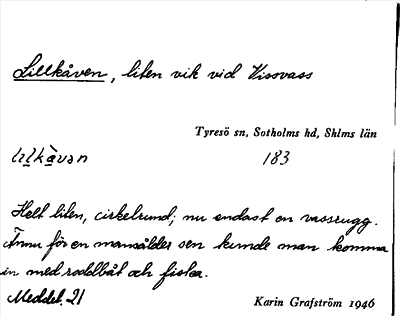 Lillkåven, liten vik vid Vissvass
Tyresö sn, Sotholms hd, Shlms län
lılkàvən 183
Helt liten, cirkelrund; nu endast en vassrugg.
Ännu för en mansålder sen kunde man komma
in med roddbåt och fiska.
Meddel. 21 Karin Grafström 1946